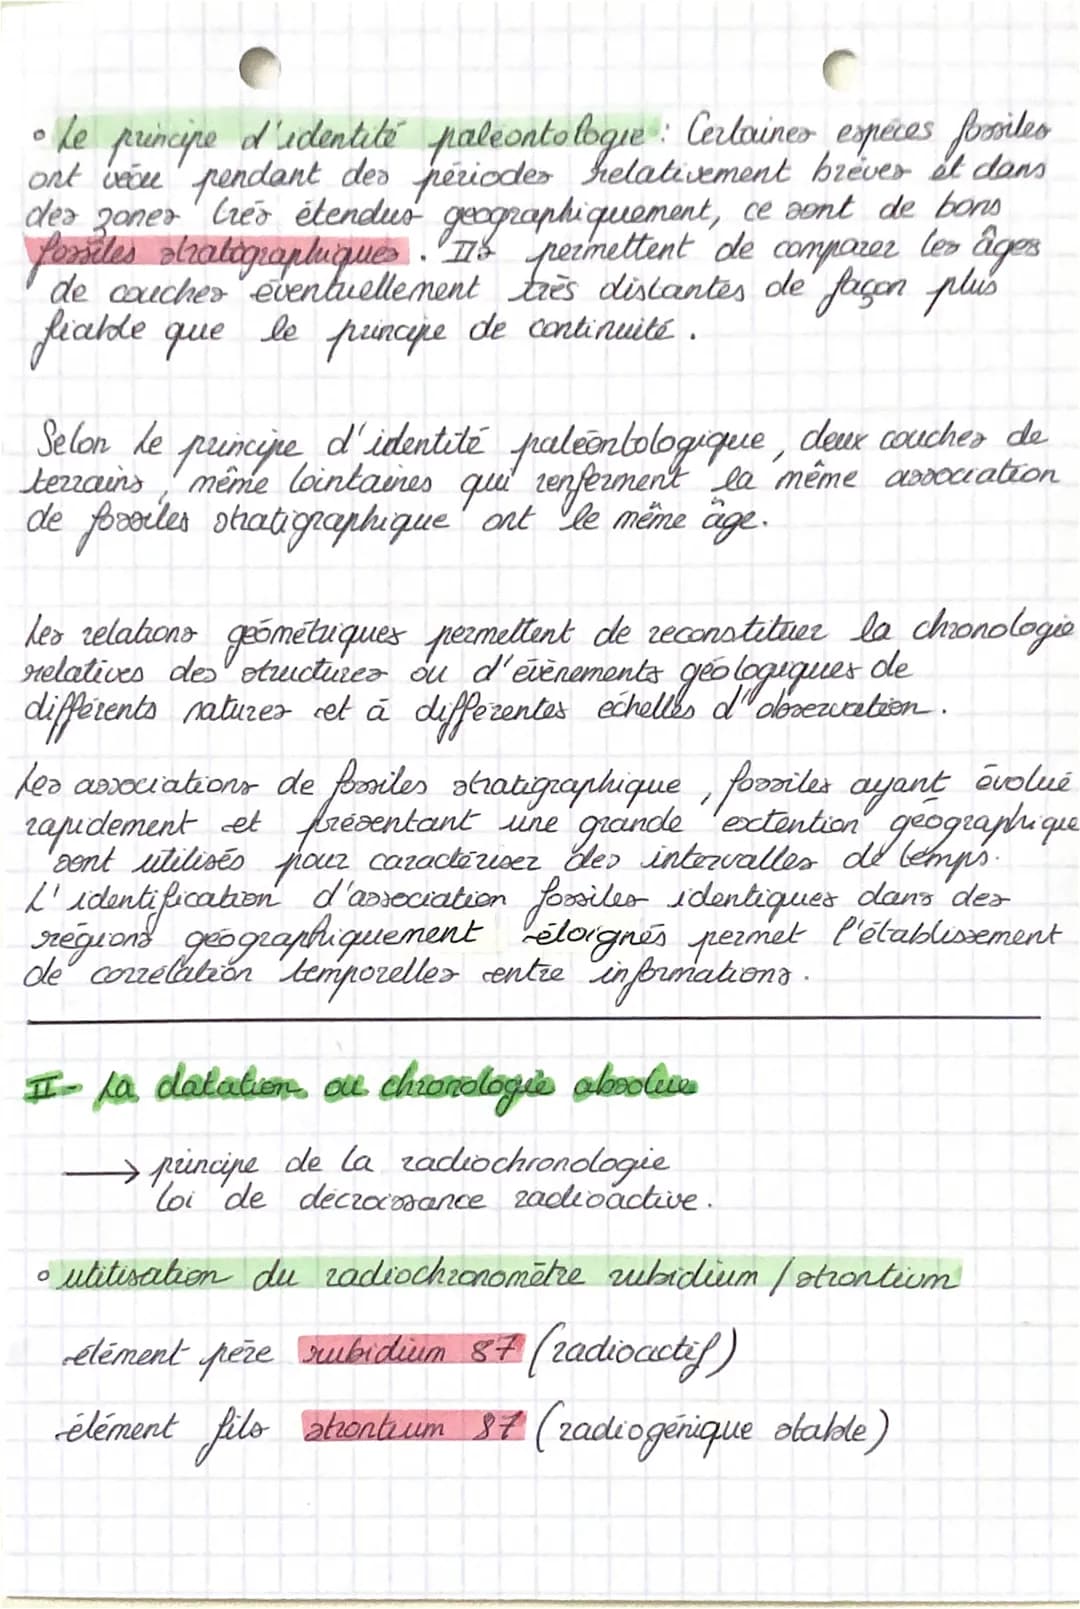 • Le principe d'identité paléontologie : Certaines espèces fossiles
ont vécu pendant des périodes relativement brèves et dans
des zones très étendus géographiquement, ce sont de bons
fossiles stratigraphiques. Ils permettent de comparer les âges
de couches éventuellement très distantes de façon plus
fiable que le principe de continuité.
Selon le principe d'identité paléontologique, deux couches de
terrains, même lointaines qui renferment la même association
de fossiles stratigraphique ont le même âge.
Les relations géométriques permettent de reconstituer la chronologie
relatives des structures ou d'évènements géologiques de
différents natures et à différentes échelles d'observation.
Les associations de fossiles stratigraphique, fossiles ayant évolué
rapidement et présentant une grande extention géographique
sont utilisés pour caractériser des intervalles de temps.
L'identification d'association fossiles identiques dans des
régions géographiquement éloignés permet l'établissement
de corrélation temporelles entre informations.
II- La datation ou chronologie absolue
→ principe de la radiochronologie
loi de décroissance radioactive.
• utitisation du radiochronomètre rubidium / strontium
élément père rubidium 87 (radioactif)
élément fils strontium 87 (radiogénique stable)